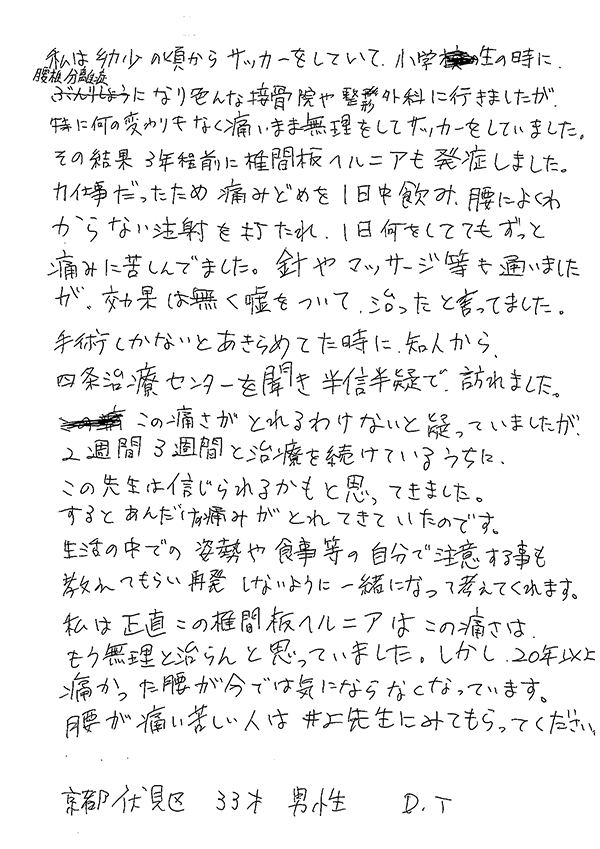 私は幼少の頃からサッカーをしていて、小学生の時に、
腰椎分離症
ぶんりしょうになり色んな接骨院や整形外科に行きましたが、
特に何の変わりもなく痛いまま無理をしてサッカーをしていました。
その結果3年程前に椎間板ヘルニアも発症しました。
力仕事だったため痛みどめを1日中飲み、腰によくわ
からない注射を打たれ、1日何をしててもずっと
痛みに苦しんでました。針やマッサージ等も通いました
が、効果は無く嘘をついて、治ったと言ってました。
手術しかないとあきらめてた時に、知人から、
四条治療センターを聞き半信半疑で、訪れました。
この痛さがとれるわけないと疑っていましたが、
2週間3週間と治療を続けているうちに、
この先生は信じられるかもと思ってきました。
するとあんだけ痛みがとれてきていたのです。
生活の中での姿勢や食事等の自分で注意する事も
教えてもらい再発しないように一緒になって考えてくれます。
私は正直この椎間板ヘルニアはこの痛さは、
もう無理と治らんと思っていました。しかし、20年以上
痛かった腰が今では気にならなくなっています。
腰が痛い苦しい人は井上先生にみてもらってください。
京都伏見区 33才 男性 D.T